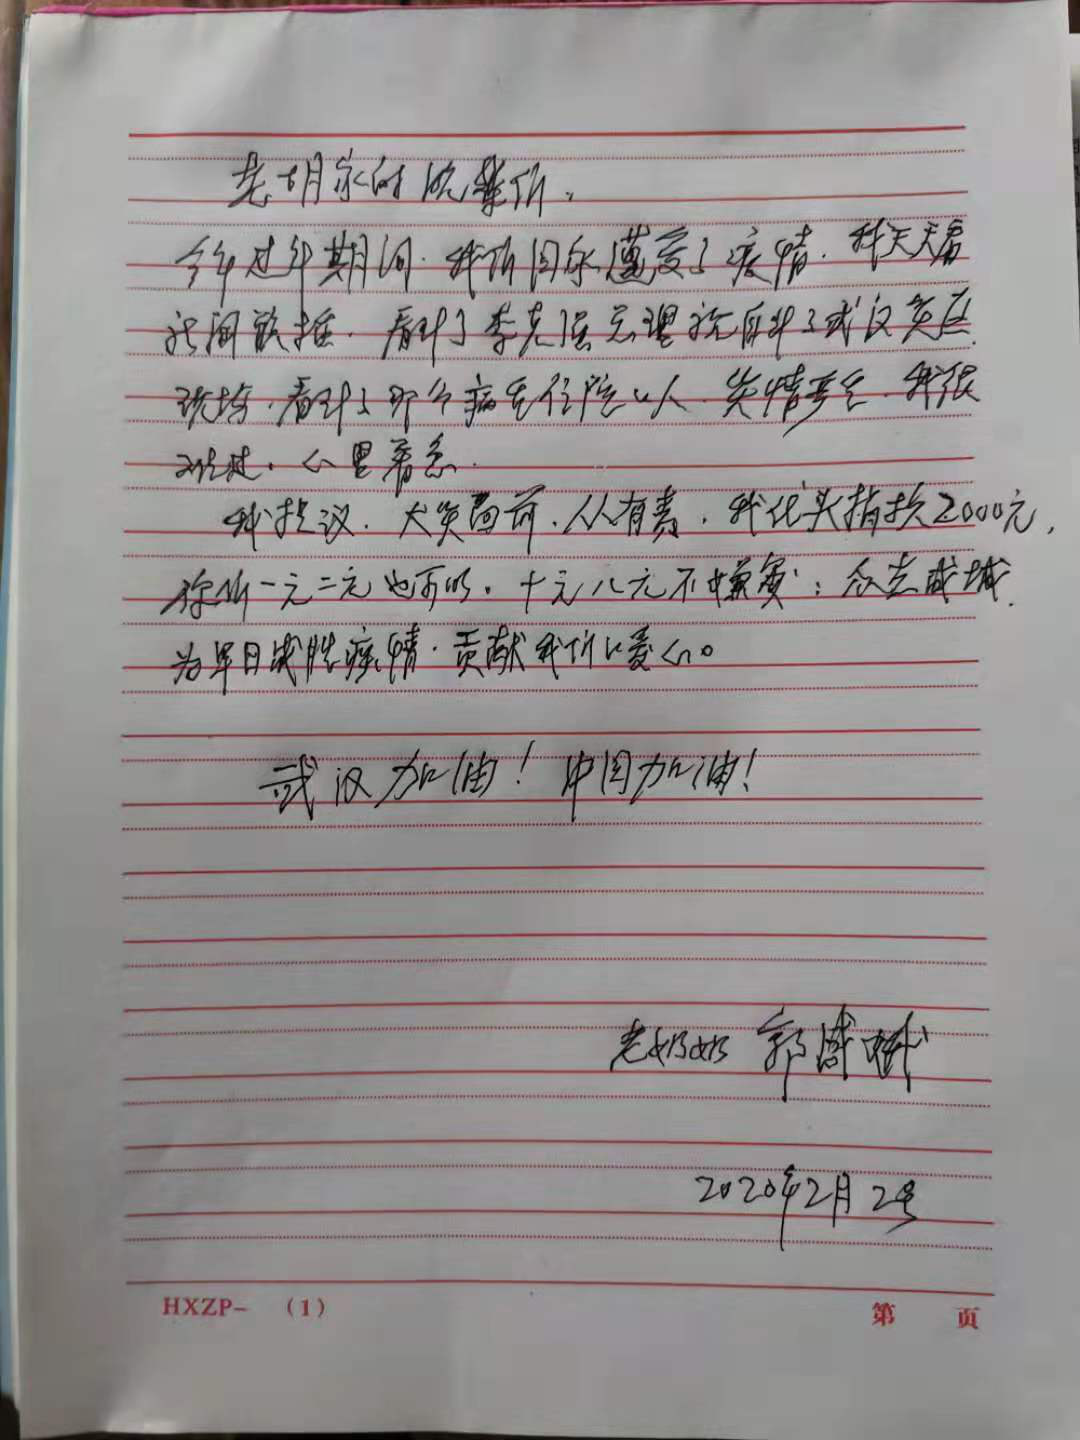 老胡家的晚辈们，
今年过年期间，我们国家遭受了疫情，我天天看
新闻联播，看到了李克强总理亲自到了武汉灾区
现场，看到了那么多住院的人，灾情严重，我很
难过，心里着急。
我提议，大灾面前，人人有责，我带头捐款2000元，
你们一元二元也可以，十元八元不嫌寡；众志成城，
为早日战胜疫情，贡献我们的爱心。
武汉加油！中国加油！
老奶奶 郭
2020年2月2号
HXZP- （1） 第 页